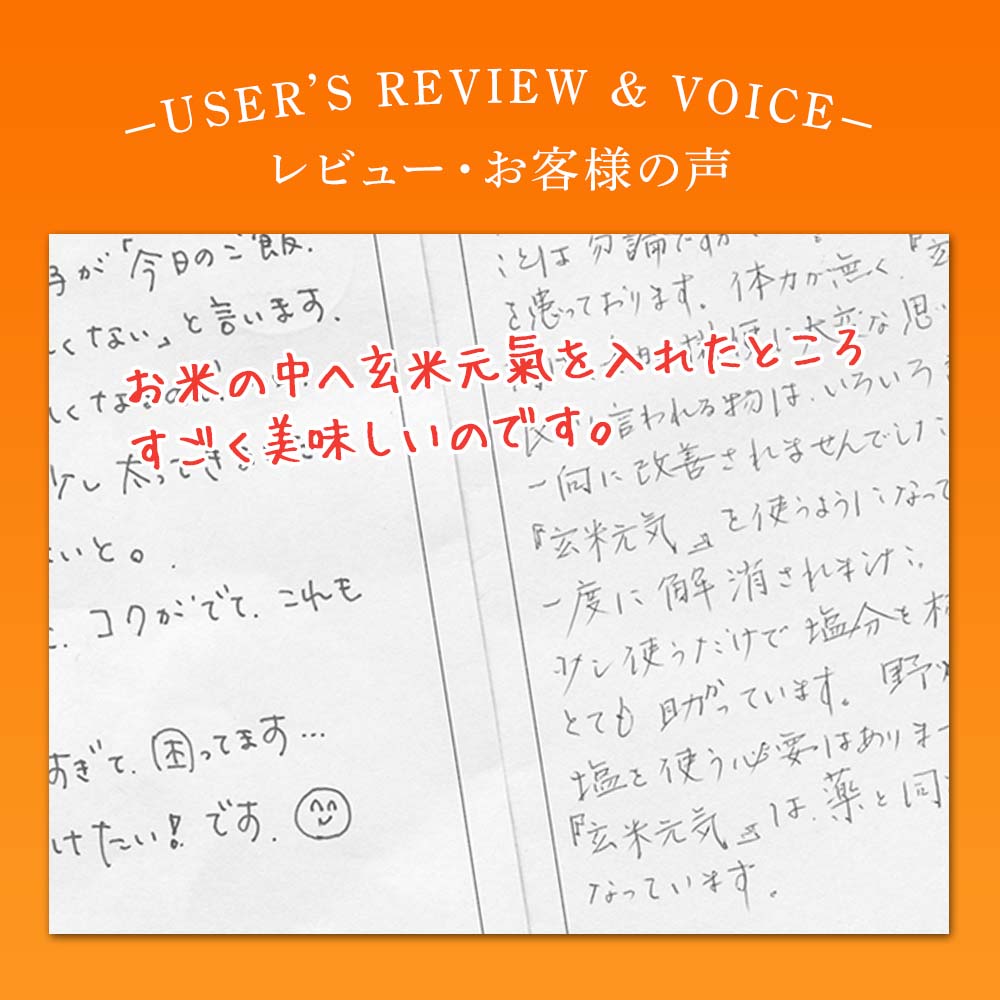 –USER'S REVIEW & VOICE–
レビュー・お客様の声
お米の中へ玄米元氣を入れたところ
すごく美味しいのです。
が「今日のご飯、
くない」と言います。
少し太ってき
いと。
コクがでて、これも
すぎて、困ってます…
けたい!です。
ことは勿論ですが
を患っております。体力が無く、『玄
に大変な思い
言われる物は、いろいろ
一向に改善されませんでした
『玄米元気』を使うようになって
一度に解消されました。
少し使うだけで塩分を
とても助かっています。野
塩を使う必要はありま
『玄米元気』は、薬と同
なっています。